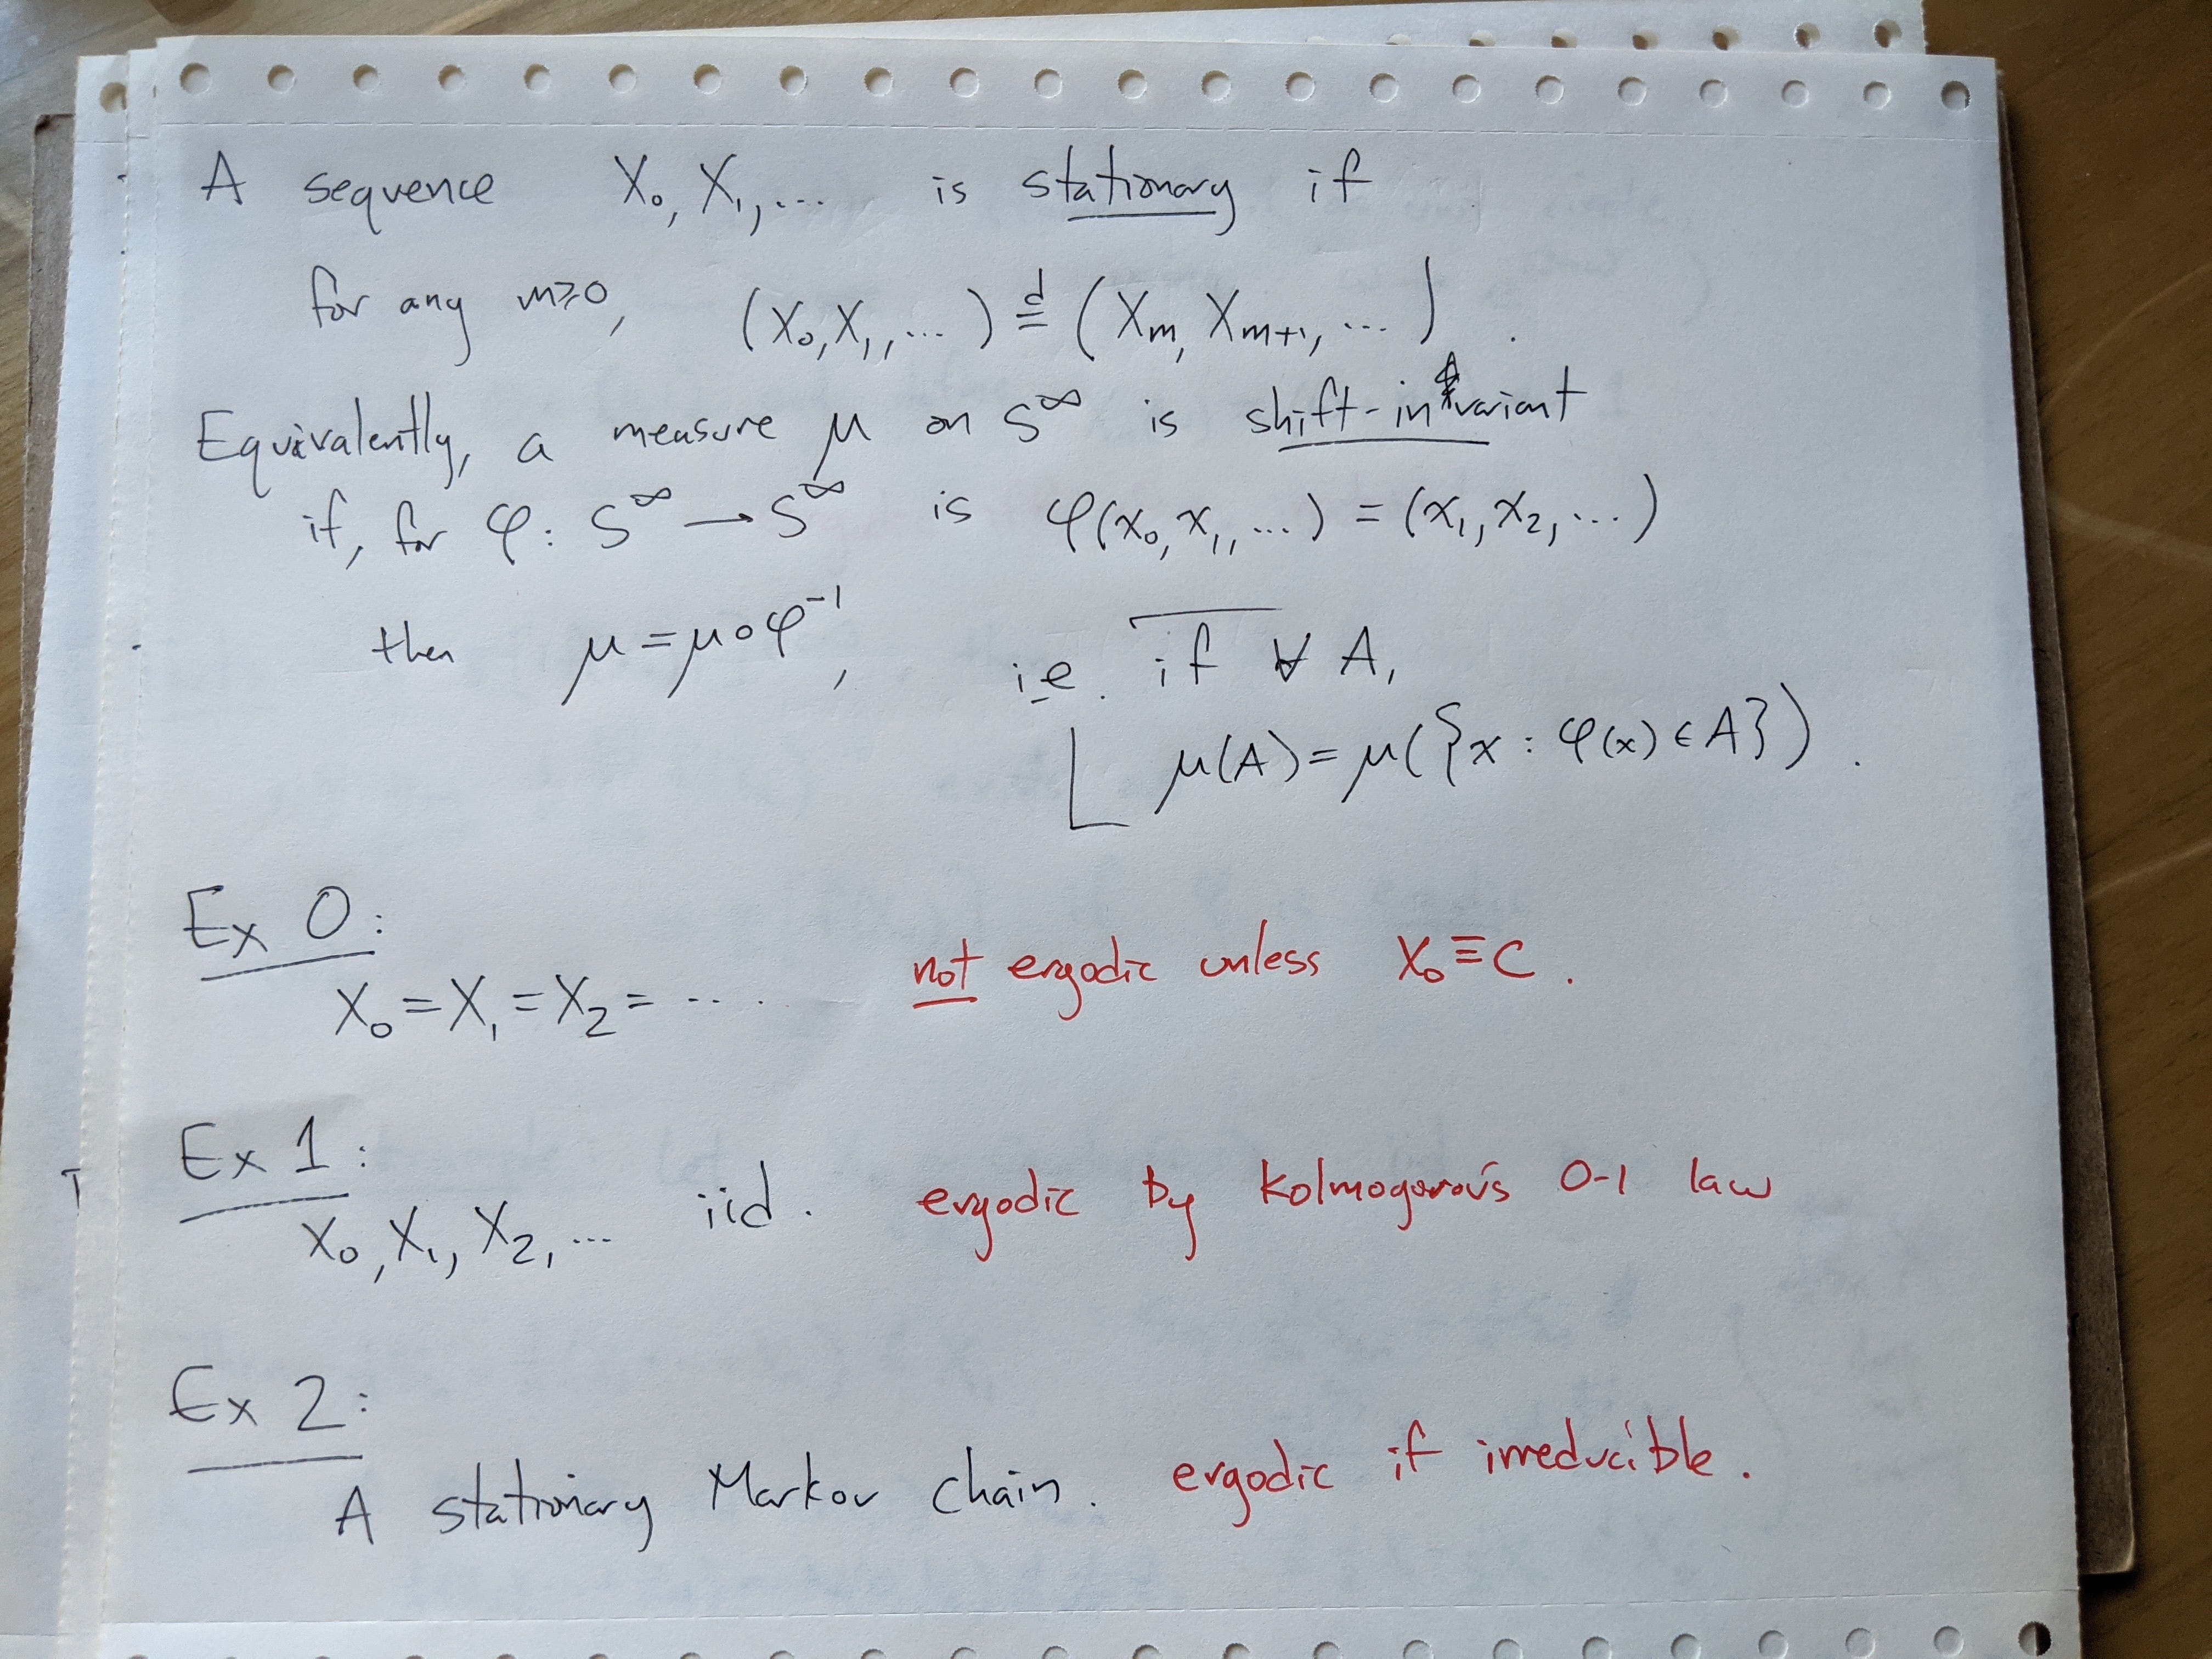 A sequence X₀, X₁, ... is stationary if
for any m≥0, (X₀, X₁, ...) =ᵈ (Xₘ, Xₘ₊₁, ...) .
Equivalently, a measure μ on S^∞ is shift-invariant
if, for φ: S^∞ → S^∞ is φ(x₀, x₁, ...) = (x₁, x₂, ...)
then μ = μ∘φ⁻¹, i.e. if ∀ A,
μ(A) = μ({x : φ(x) ∈ A}) .
Ex 0:
X₀ = X₁ = X₂ = ..... not ergodic unless X₀ ≡ C .
Ex 1:
X₀, X₁, X₂, ... iid. ergodic by Kolmogorov's 0-1 law
Ex 2:
A stationary Markov chain. ergodic if irreducible.